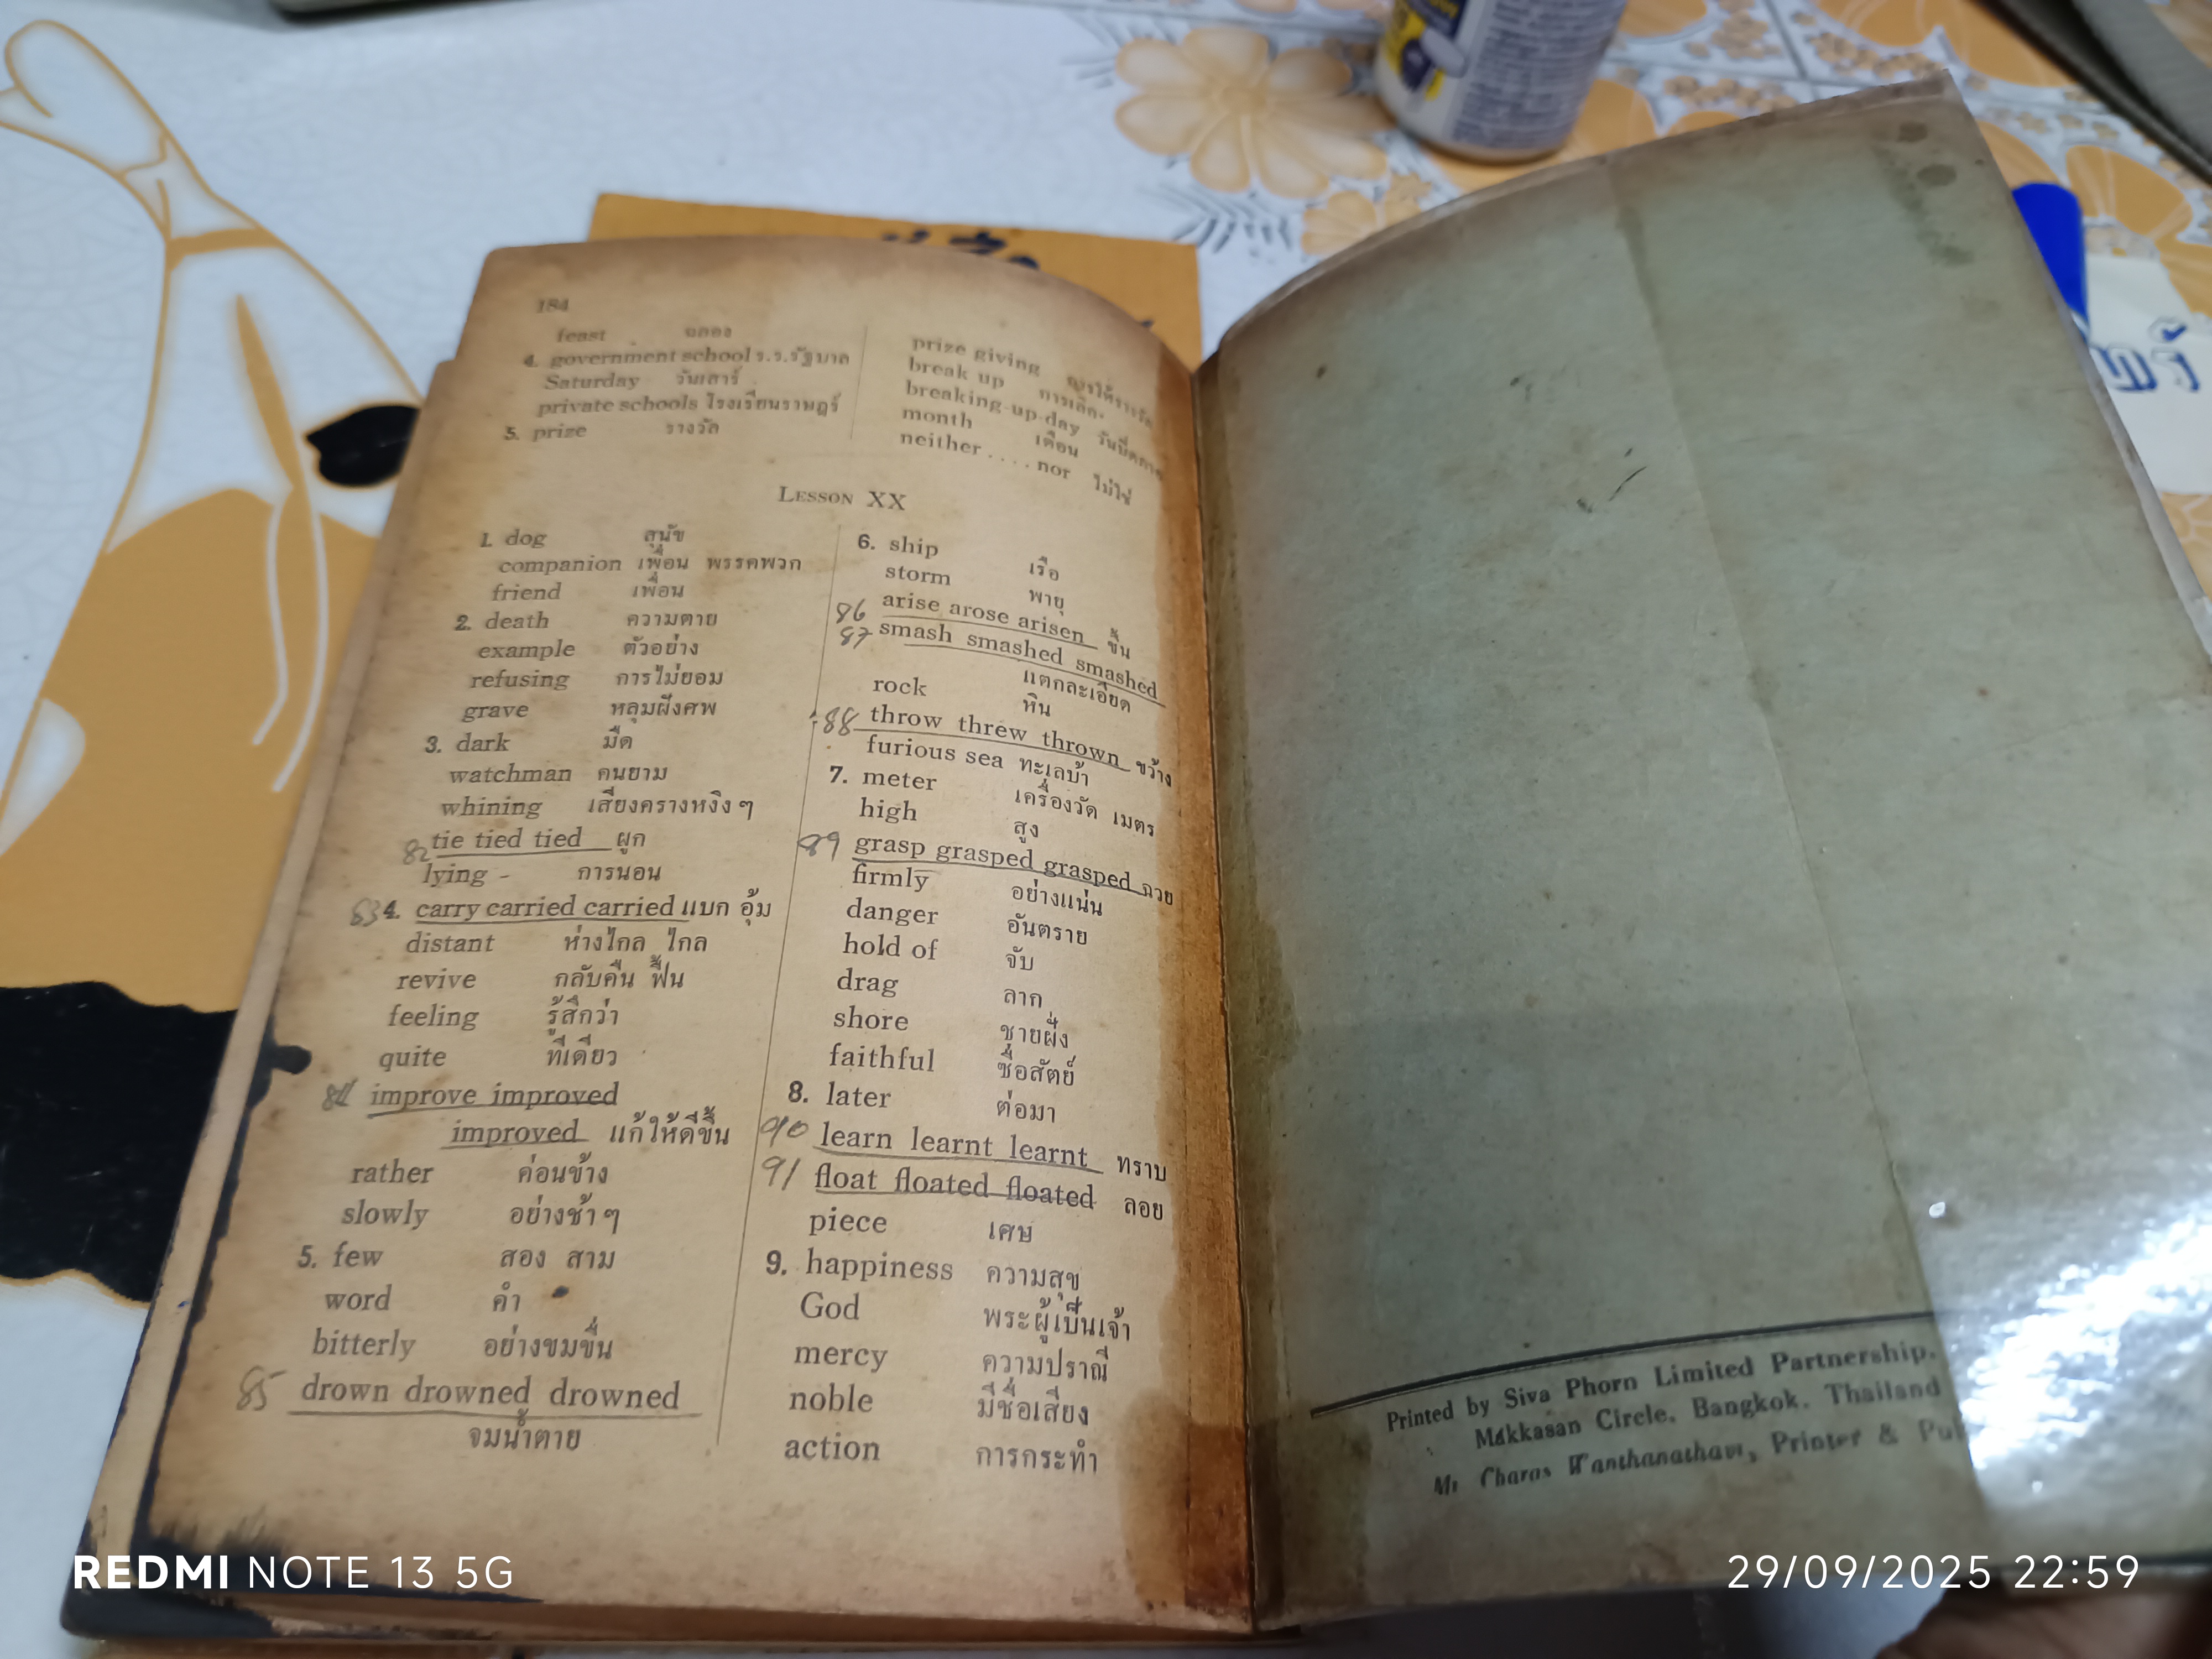 184
feast ฉลอง
4. government school ร.ร.รัฐบาล
Saturday วันเสาร์
private schools โรงเรียนราษฎร์
5. prize รางวัล
prize giving
break up การเลิก
breaking-up-day
month เดือน
neither .... nor ไม่ใช่
LESSON XX
1. dog สุนัข
companion เพื่อน พรรคพวก
friend เพื่อน
2. death ความตาย
example ตัวอย่าง
refusing การไม่ยอม
grave หลุมฝังศพ
3. dark มืด
watchman คนยาม
whining เสียงครางหงิง ๆ
82 tie tied tied ผูก
lying - การนอน
83 4. carry carried carried แบก อุ้ม
distant ห่างไกล ไกล
revive กลับคืน ฟื้น
feeling รู้สึกว่า
quite ทีเดียว
84 improve improved
improved แก้ให้ดีขึ้น
rather ค่อนข้าง
slowly อย่างช้า ๆ
5. few สอง สาม
word คำ
bitterly อย่างขมขื่น
85 drown drowned drowned
จมน้ำตาย
6. ship เรือ
storm พายุ
86 arise arose arisen ขึ้น
87 smash smashed smashed
แตกละเอียด
rock หิน
88 throw threw thrown ขว้าง
furious sea ทะเลบ้า
7. meter เครื่องวัด เมตร
high สูง
89 grasp grasped grasped ฉวย
firmly อย่างแน่น
danger อันตราย
hold of จับ
drag ลาก
shore ชายฝั่ง
faithful ซื่อสัตย์
8. later ต่อมา
90 learn learnt learnt ทราบ
91 float floated floated ลอย
piece เศษ
9. happiness ความสุข
God พระผู้เป็นเจ้า
mercy ความปราณี
noble มีชื่อเสียง
action การกระทำ
Printed by Siva Phorn Limited Partnership.
Makkasan Circle. Bangkok. Thailand
Mr Charas Wanthanathawi, Printer & Pu
REDMI NOTE 13 5G
29/09/2025 22:59